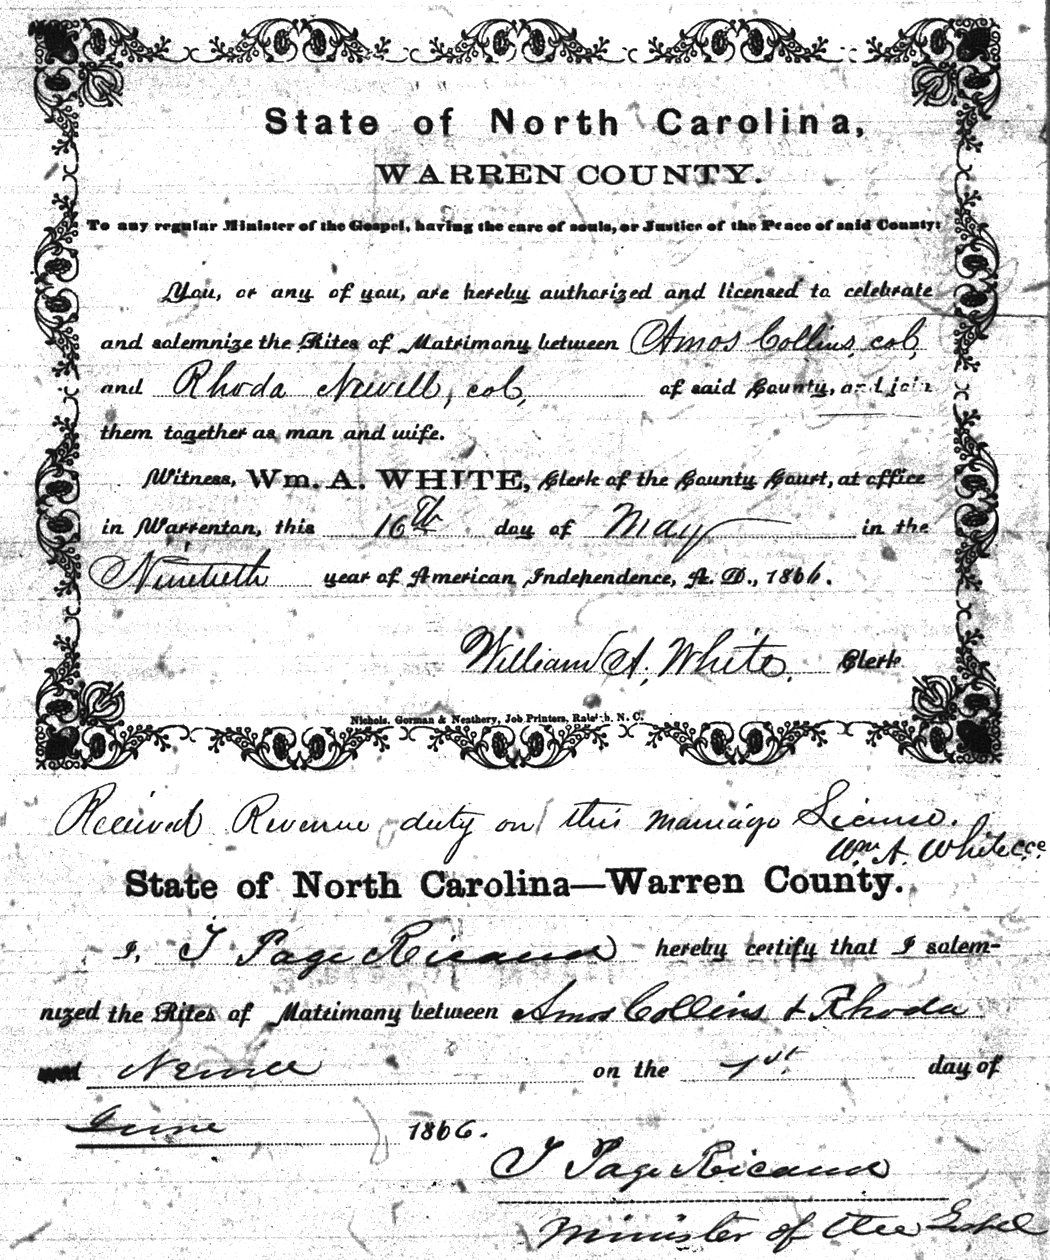 State of North Carolina,
WARREN COUNTY.
To any regular Minister of the Gospel, having the care of souls, or Justice of the Peace of said County:
You, or any of you, are hereby authorized and licensed to celebrate
and solemnize the Rites of Matrimony between Amos Collins, col,
and Rhoda Newell, col, of said County, and join
them together as man and wife.
Witness, Wm. A. WHITE, Clerk of the County Court, at office
in Warrenton, this 16th day of May in the
Ninetieth year of American Independence, A. D., 1866.
William A. White, Clerk
Nichols, Gorman & Neathery, Job Printers, Raleigh, N. C.
Received Revenue duty on this marriage License.
Wm A. White C.C.C
State of North Carolina—Warren County.
I, T Page Ricaud hereby certify that I solem-
nized the Rites of Matrimony between Amos Collins & Rhoda
Newell on the 1st day of
June 1866.
T Page Ricaud
Minister of the Gospel